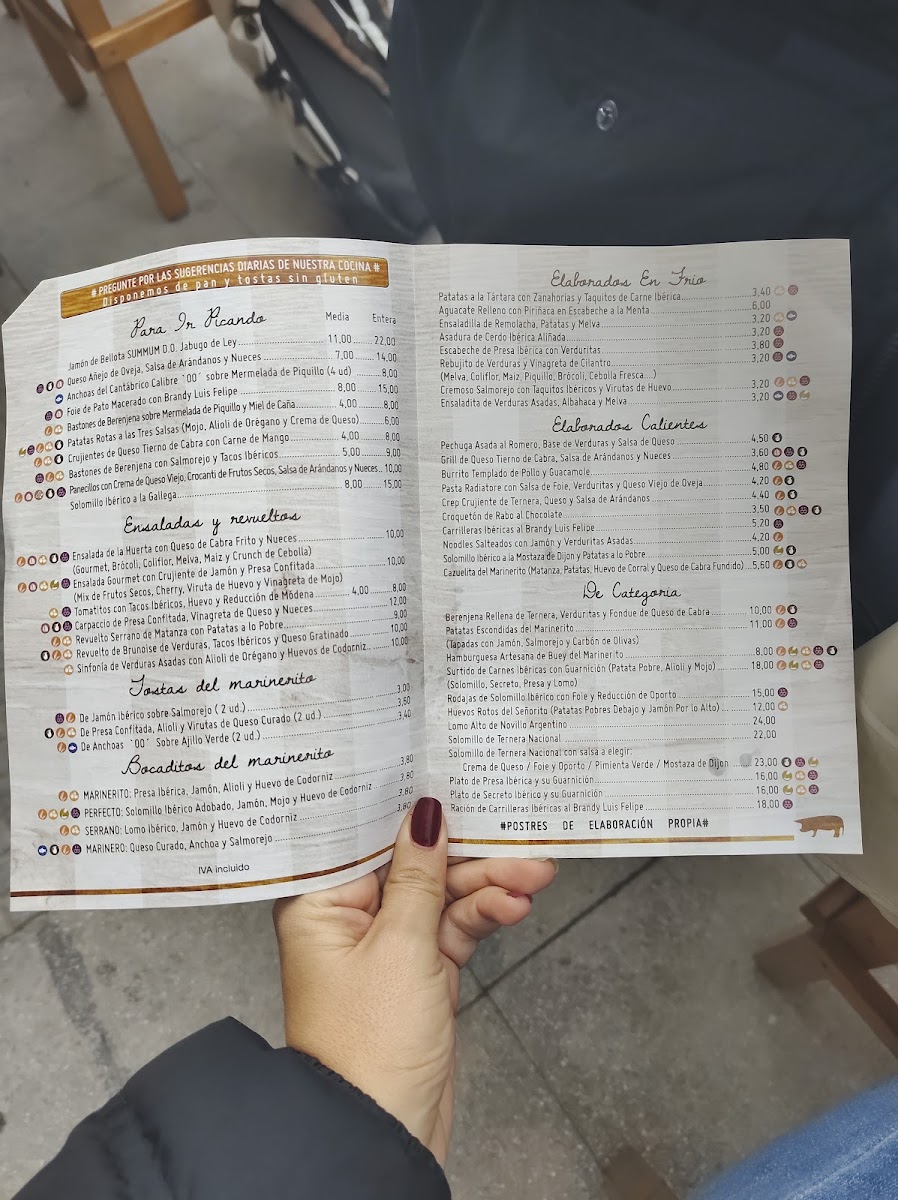 # PREGUNTE POR LAS SUGERENCIAS DIARIAS DE NUESTRA COCINA #
Disponemos de pan y tostas sin gluten
Para Ir Picando Media Entera
Jamón de Bellota SUMMUM D.O. Jabugo de Ley 11,00 22,00
Queso Añejo de Oveja, Salsa de Arándanos y Nueces 7,00 14,00
Anchoas del Cantábrico Calibre ¨00¨ sobre Mermelada de Piquillo (4 ud) 8,00
Foie de Pato Macerado con Brandy Luis Felipe 8,00 15,00
Bastones de Berenjena sobre Mermelada de Piquillo y Miel de Caña 4,00 8,00
Patatas Rotas a las Tres Salsas (Mojo, Alioli de Orégano y Crema de Queso) 6,00
Crujientes de Queso Tierno de Cabra con Carne de Mango 4,00 8,00
Bastones de Berenjena con Salmorejo y Tacos Ibéricos 5,00 9,00
Panecillos con Crema de Queso Viejo, Crocanti de Frutos Secos, Salsa de Arándanos y Nueces 10,00
Solomillo Ibérico a la Gallega 8,00 15,00
Ensaladas y revueltos
Ensalada de la Huerta con Queso de Cabra Frito y Nueces 10,00
(Gourmet, Brócoli, Coliflor, Melva, Maiz y Crunch de Cebolla)
Ensalada Gourmet con Crujiente de Jamón y Presa Confitada 10,00
(Mix de Frutos Secos, Cherry, Viruta de Huevo y Vinagreta de Mojo)
Tomatitos con Tacos Ibéricos, Huevo y Reducción de Módena 4,00 8,00
Carpaccio de Presa Confitada, Vinagreta de Queso y Nueces 12,00
Revuelto Serrano de Matanza con Patatas a lo Pobre 9,00
Revuelto de Brunoise de Verduras, Tacos Ibéricos y Queso Gratinado 10,00
Sinfonía de Verduras Asadas con Alioli de Orégano y Huevos de Codorniz 10,00
Tostas del marinerito
De Jamón Ibérico sobre Salmorejo ( 2 ud.) 3,00
De Presa Confitada, Alioli y Virutas de Queso Curado (2 ud.) 3,60
De Anchoas ¨00¨ Sobre Ajillo Verde (2 ud.) 3,40
Bocaditos del marinerito
MARINERITO: Presa Ibérica, Jamón, Alioli y Huevo de Codorniz 3,80
PERFECTO: Solomillo Ibérico Adobado, Jamón, Mojo y Huevo de Codorniz 3,80
SERRANO: Lomo Ibérico, Jamón y Huevo de Codorniz 3,80
MARINERO: Queso Curado, Anchoa y Salmorejo 3,80
IVA incluido
Elaborados En Frío
Patatas a la Tártara con Zanahorias y Taquitos de Carne Ibérica 3,40
Aguacate Relleno con Piriñaca en Escabeche a la Menta 6,00
Ensaladilla de Remolacha, Patatas y Melva 3,20
Asadura de Cerdo Ibérica Aliñada 3,20
Escabeche de Presa Ibérica con Verduritas 3,80
Rebujito de Verduras y Vinagreta de Cilantro 3,20
(Melva, Coliflor, Maiz, Piquillo, Brócoli, Cebolla Fresca...)
Cremoso Salmorejo con Taquitos Ibéricos y Virutas de Huevo 3,20
Ensaladita de Verduras Asadas, Albahaca y Melva 3,20
Elaborados Calientes
Pechuga Asada al Romero, Base de Verduras y Salsa de Queso 4,50
Grill de Queso Tierno de Cabra, Salsa de Arándanos y Nueces 3,60
Burrito Templado de Pollo y Guacamole 4,80
Pasta Radiatore con Salsa de Foie, Verduritas y Queso Viejo de Oveja 4,20
Crep Crujiente de Ternera, Queso y Salsa de Arándanos 4,40
Croquetón de Rabo al Chocolate 3,50
Carrilleras Ibéricas al Brandy Luis Felipe 5,20
Noodles Salteados con Jamón y Verduritas Asadas 4,20
Solomillo Ibérico a la Mostaza de Dijon y Patatas a lo Pobre 5,00
Cazuelita del Marinerito (Matanza, Patatas, Huevo de Corral y Queso de Cabra Fundido) 5,60
De Categoría
Berenjena Rellena de Ternera, Verduritas y Fondue de Queso de Cabra 10,00
Patatas Escondidas del Marinerito 11,00
(Tapadas con Jamón, Salmorejo y Carbón de Olivas)
Hamburguesa Artesana de Buey del Marinerito 8,00
Surtido de Carnes Ibéricas con Guarnición (Patata Pobre, Alioli y Mojo) 18,00
(Solomillo, Secreto, Presa y Lomo)
Rodajas de Solomillo Ibérico con Foie y Reducción de Oporto 15,00
Huevos Rotos del Señorito (Patatas Pobres Debajo y Jamón Por lo Alto) 12,00
Lomo Alto de Novillo Argentino 24,00
Solomillo de Ternera Nacional 22,00
Solomillo de Ternera Nacional con salsa a elegir:
Crema de Queso / Foie y Oporto / Pimienta Verde / Mostaza de Dijon 23,00
Plato de Presa Ibérica y su Guarnición 16,00
Plato de Secreto Ibérico y su Guarnición 16,00
Ración de Carrilleras Ibéricas al Brandy Luis Felipe 18,00
#POSTRES DE ELABORACIÓN PROPIA#